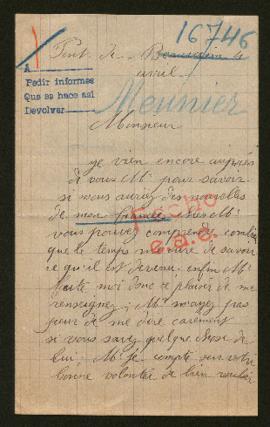 16746
Pont de Beauvoisin le
avril
A
Pedir informes
Que se hace asi
Devolver
Meunier
Monsieur
je vien encore auprès
de vous Mr pour savoir
si vous auriez des nouvelles
de mon
vous pouvez comprendre combien
que le temps me dure de savoir
ce qu'il est devenu enfin Mr
faite moi donc ce plaisir de me
renseignez; Mr n'ayez pas
peur de me dire carement
si vous savez quelque chose de
lui; Mr je compte sur votre
bonne volontée de bien vouloir